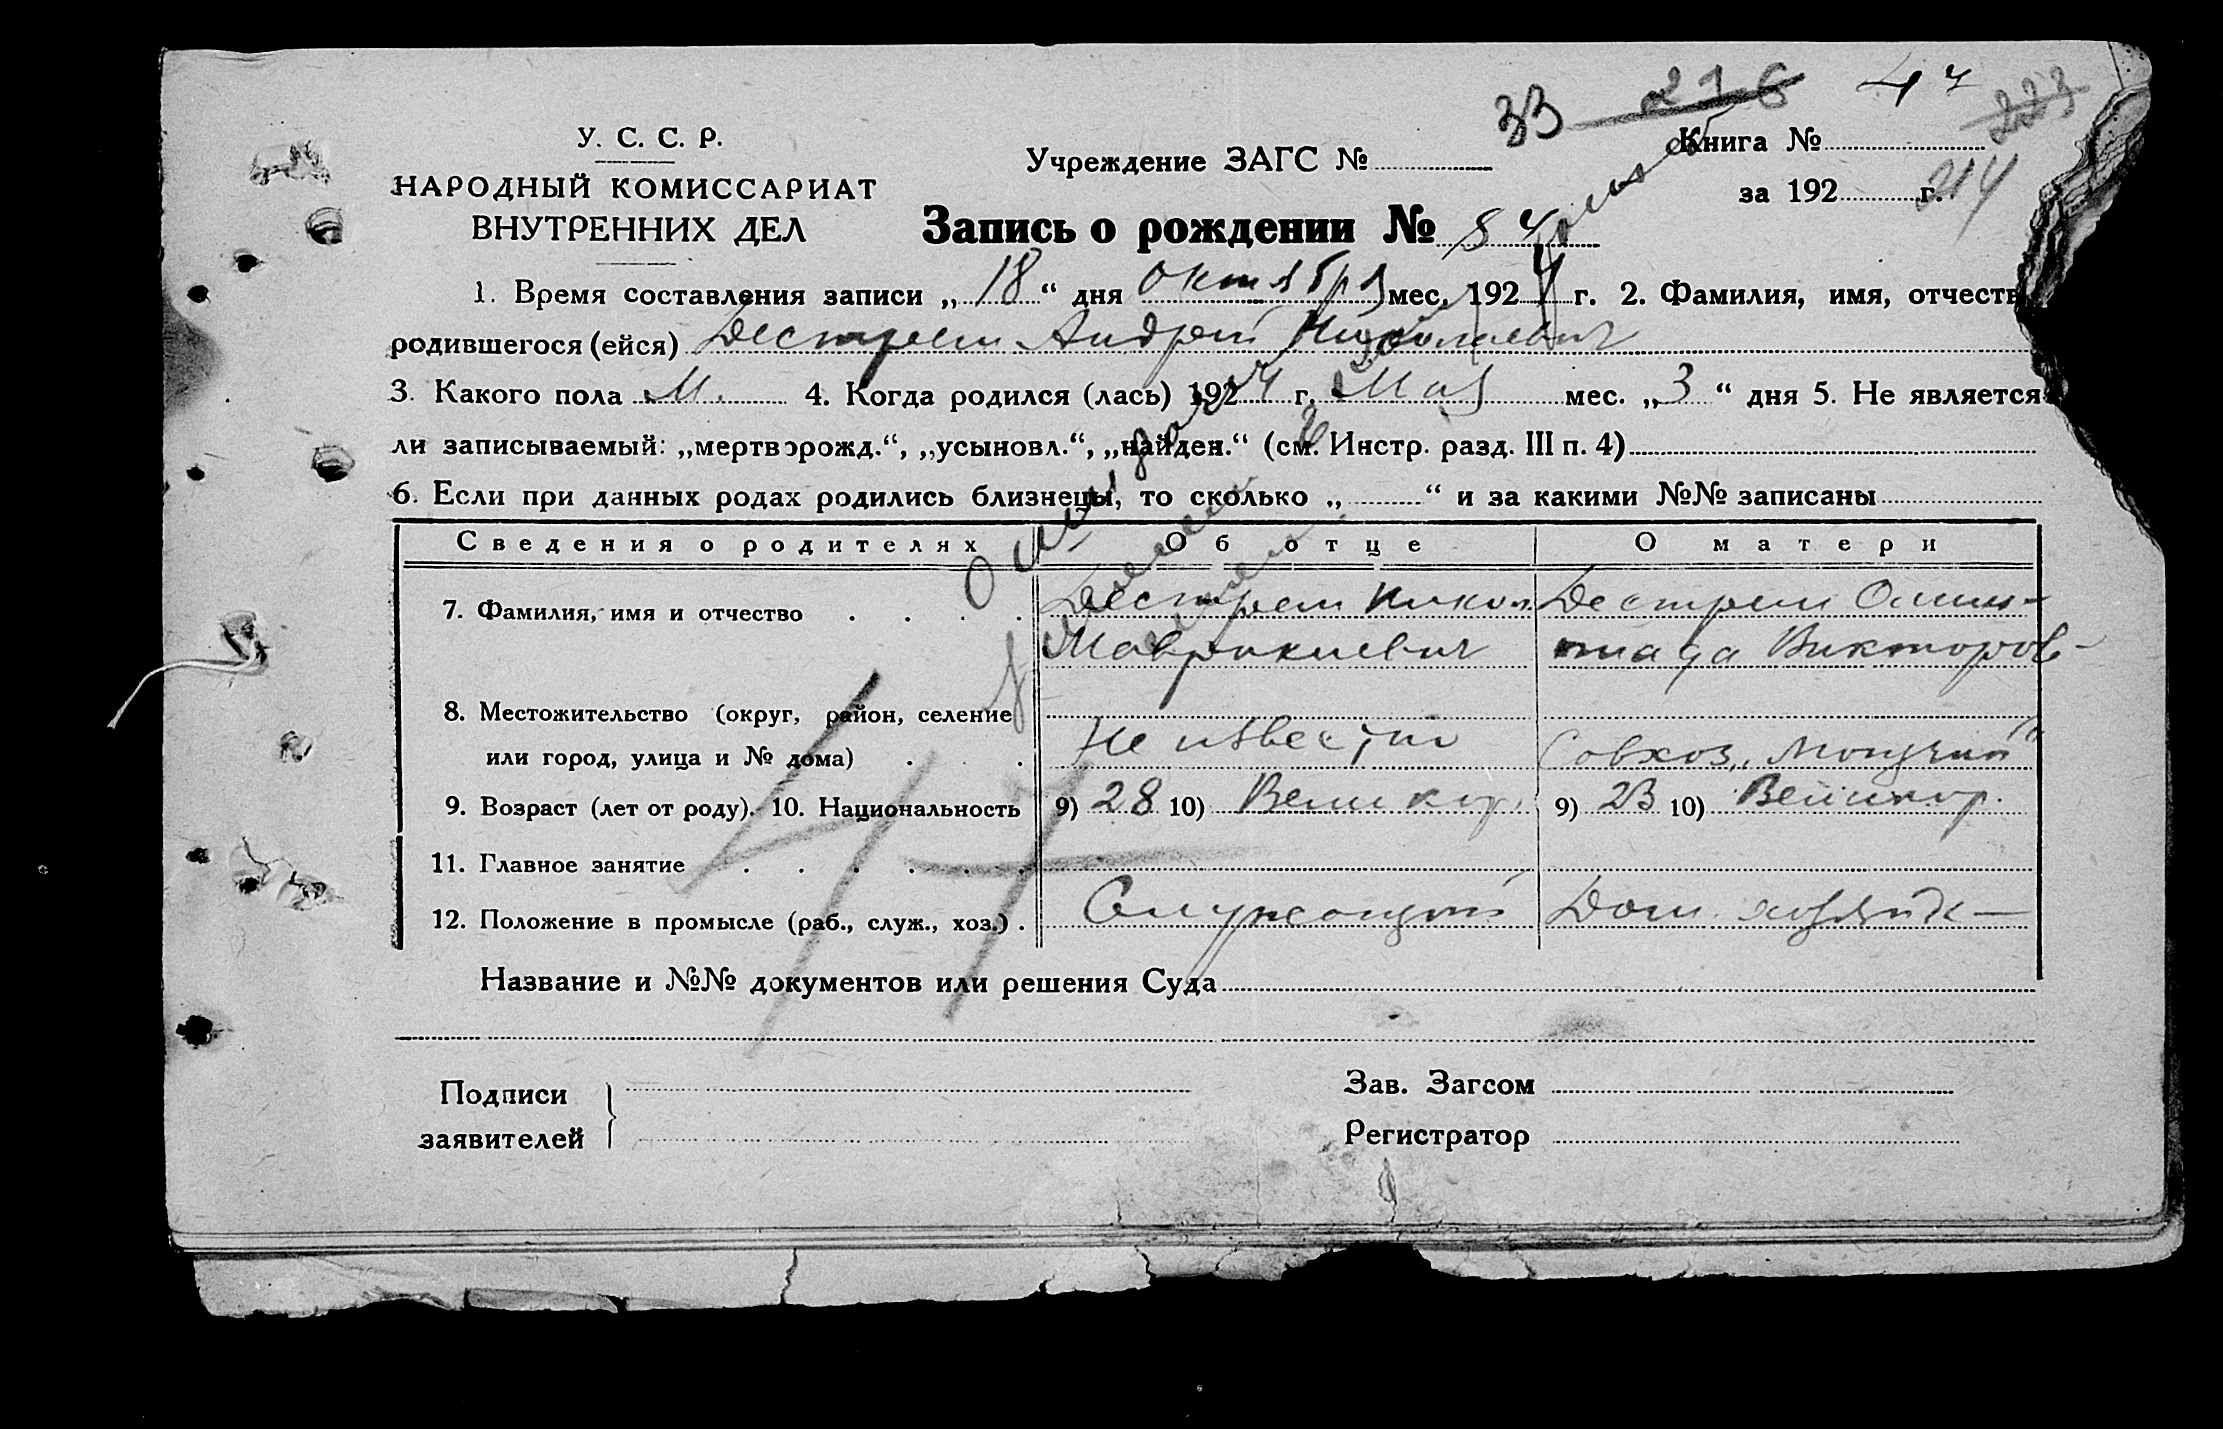 33 216 47 223
У. С. С. Р.
Учреждение ЗАГС №
Книга №
НАРОДНЫЙ КОМИССАРИАТ
за 192 г. 214
ВНУТРЕННИХ ДЕЛ
Запись о рождении № 84
1. Время составления записи „18“ дня октября мес. 1924 г. 2. Фамилия, имя, отчеств
родившегося (ейся) Дестрем Андрей Николаевич
3. Какого пола М. 4. Когда родился (лась) 1924 г. Мая мес. „3“ дня 5. Не является
ли записываемый: „мертворожд.“, „усыновл.“, „найден.“ (см. Инстр. разд. III п. 4)
6. Если при данных родах родились близнецы, то сколько „ “ и за какими №№ записаны
Сведения о родителях Об отце О матери
7. Фамилия, имя и отчество Дестрем Никол. Дестрем Олим-
Маврикиевич пиада Викторов-
8. Местожительство (округ, район, селение
или город, улица и № дома) Не известно Совхоз „
9. Возраст (лет от роду). 10. Национальность 9) 28 10) Великор. 9) 23 10) Великор.
11. Главное занятие
12. Положение в промысле (раб., служ., хоз.) Служащий Дом. хозяйк
47
Название и №№ документов или решения Суда
Подписи
заявителей
Зав. Загсом
Регистратор